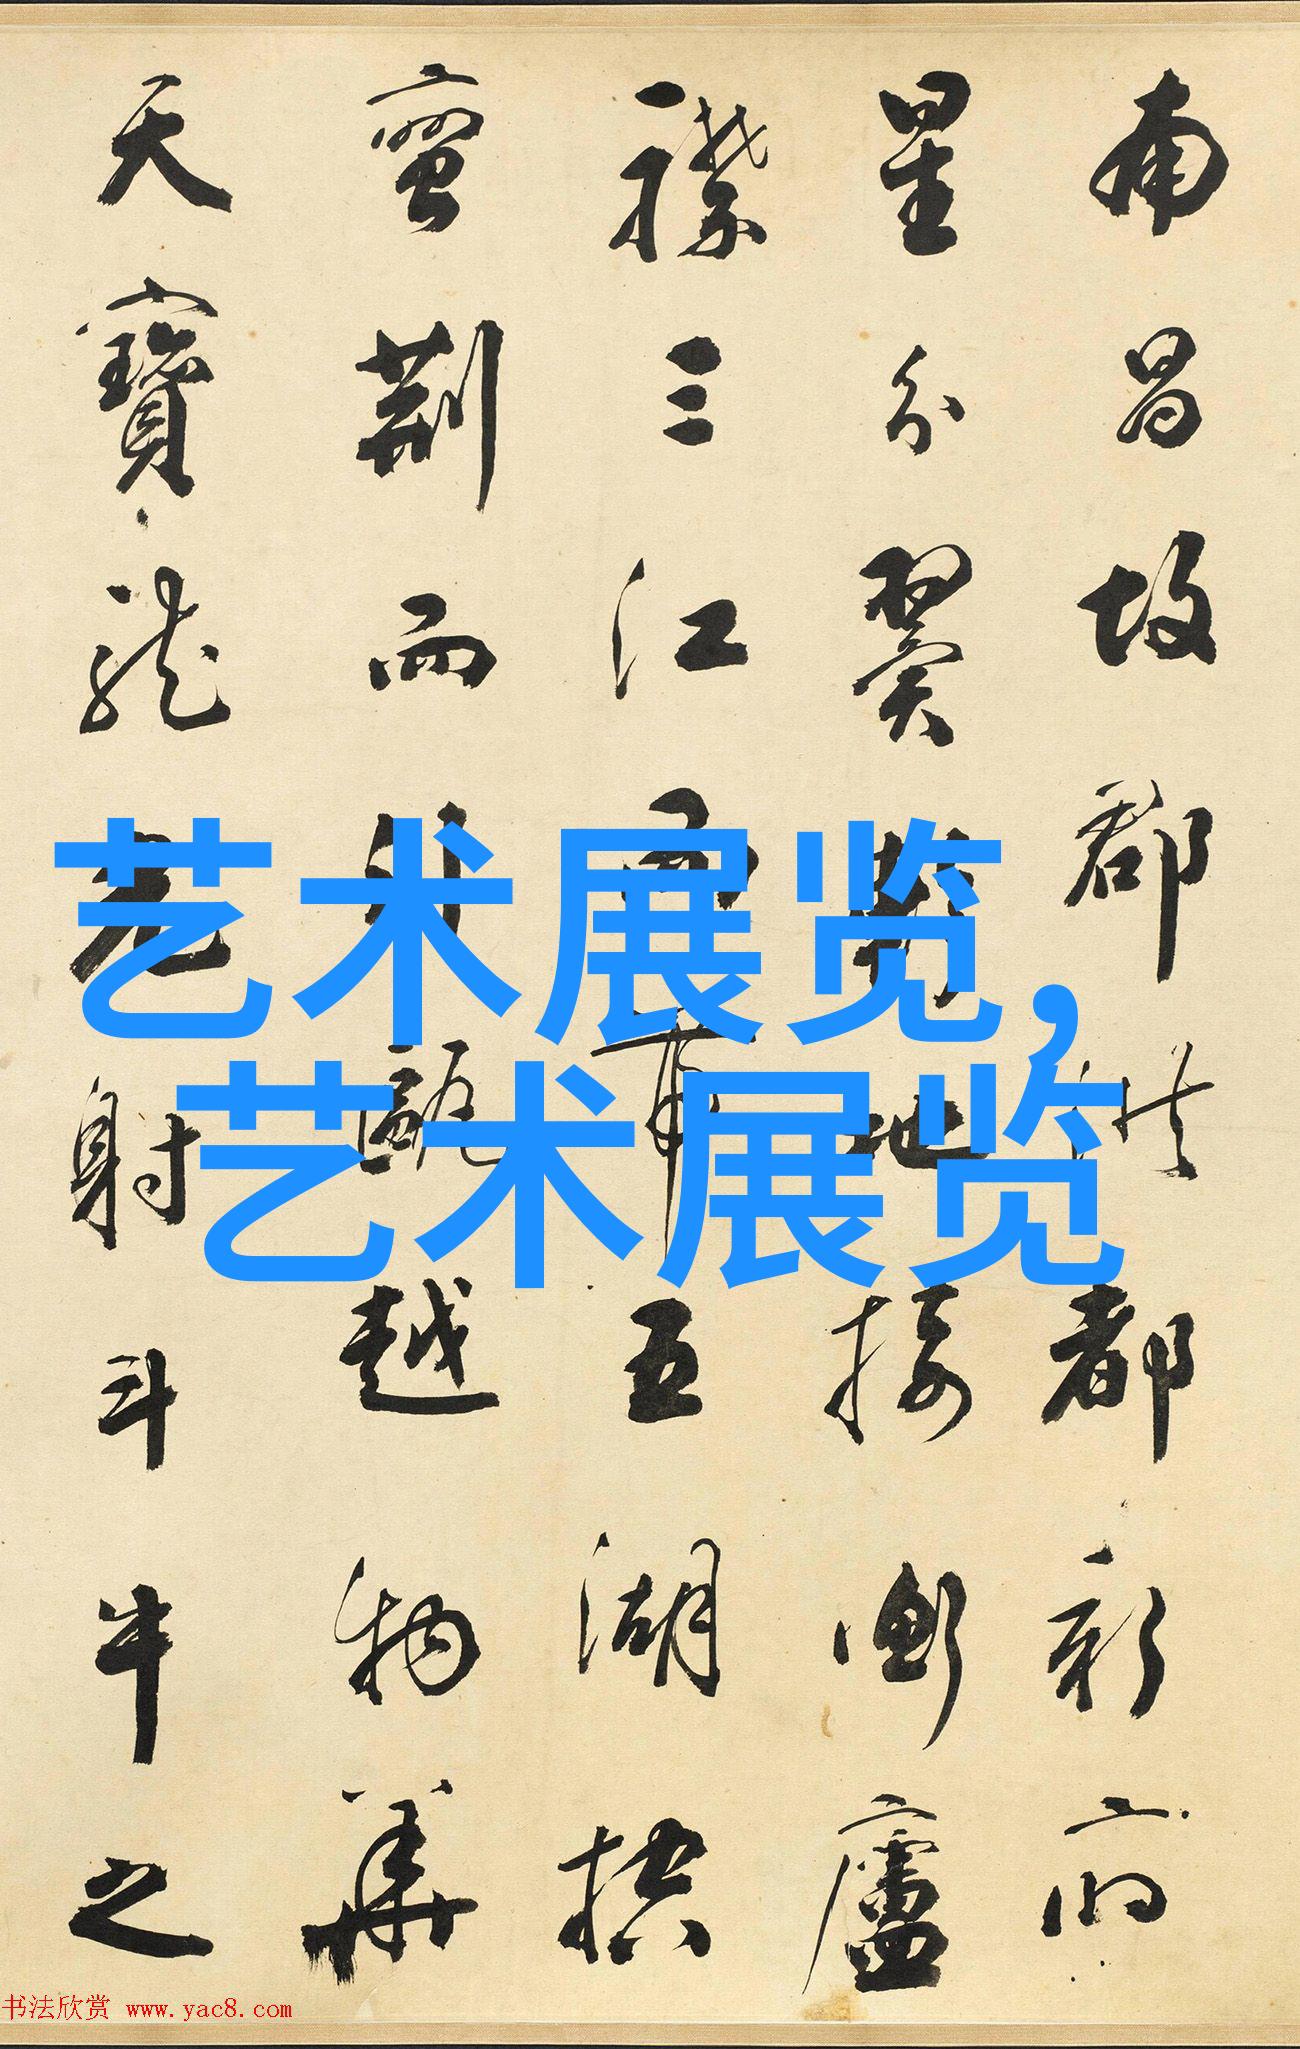 南昌故郡洪都新府
星分翼軫地接衡廬
襟三江而帶五湖控
蠻荊而引甌越物華
天寶龍光射斗牛之
艺术展览,
艺术展览
书法欣赏 www.yac8.com